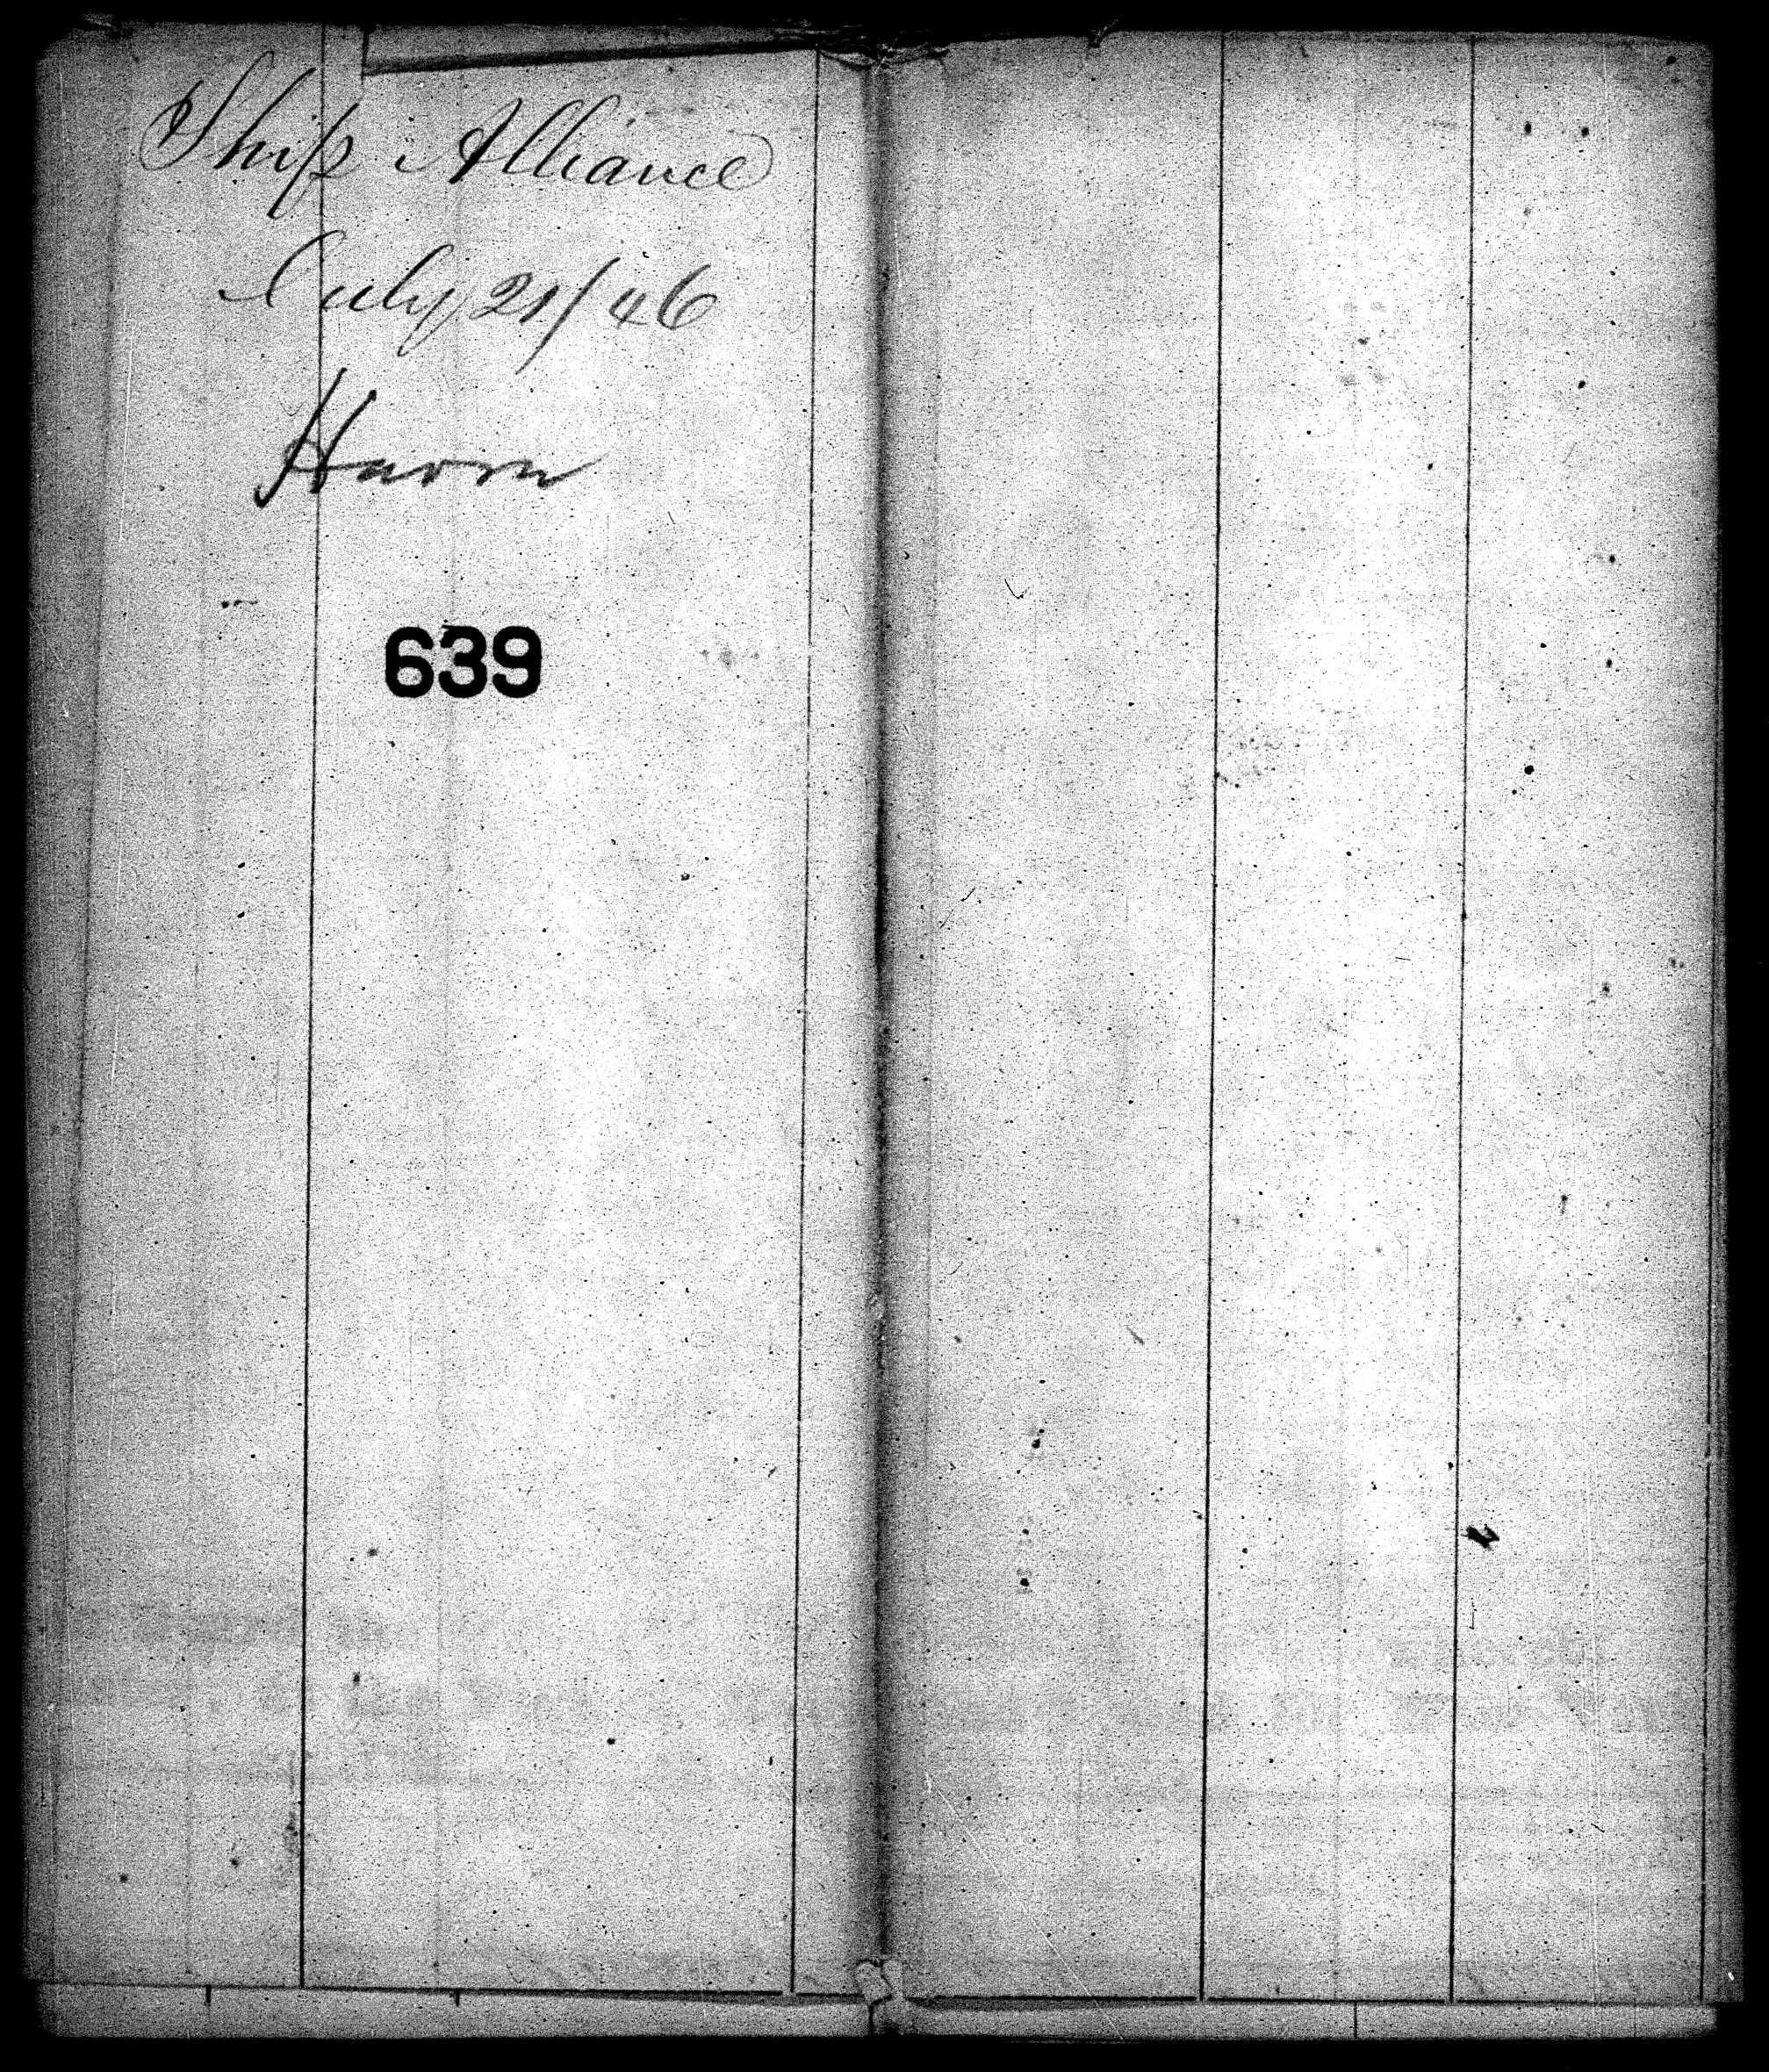 Ship Alliance
July 21/46
Havre
639